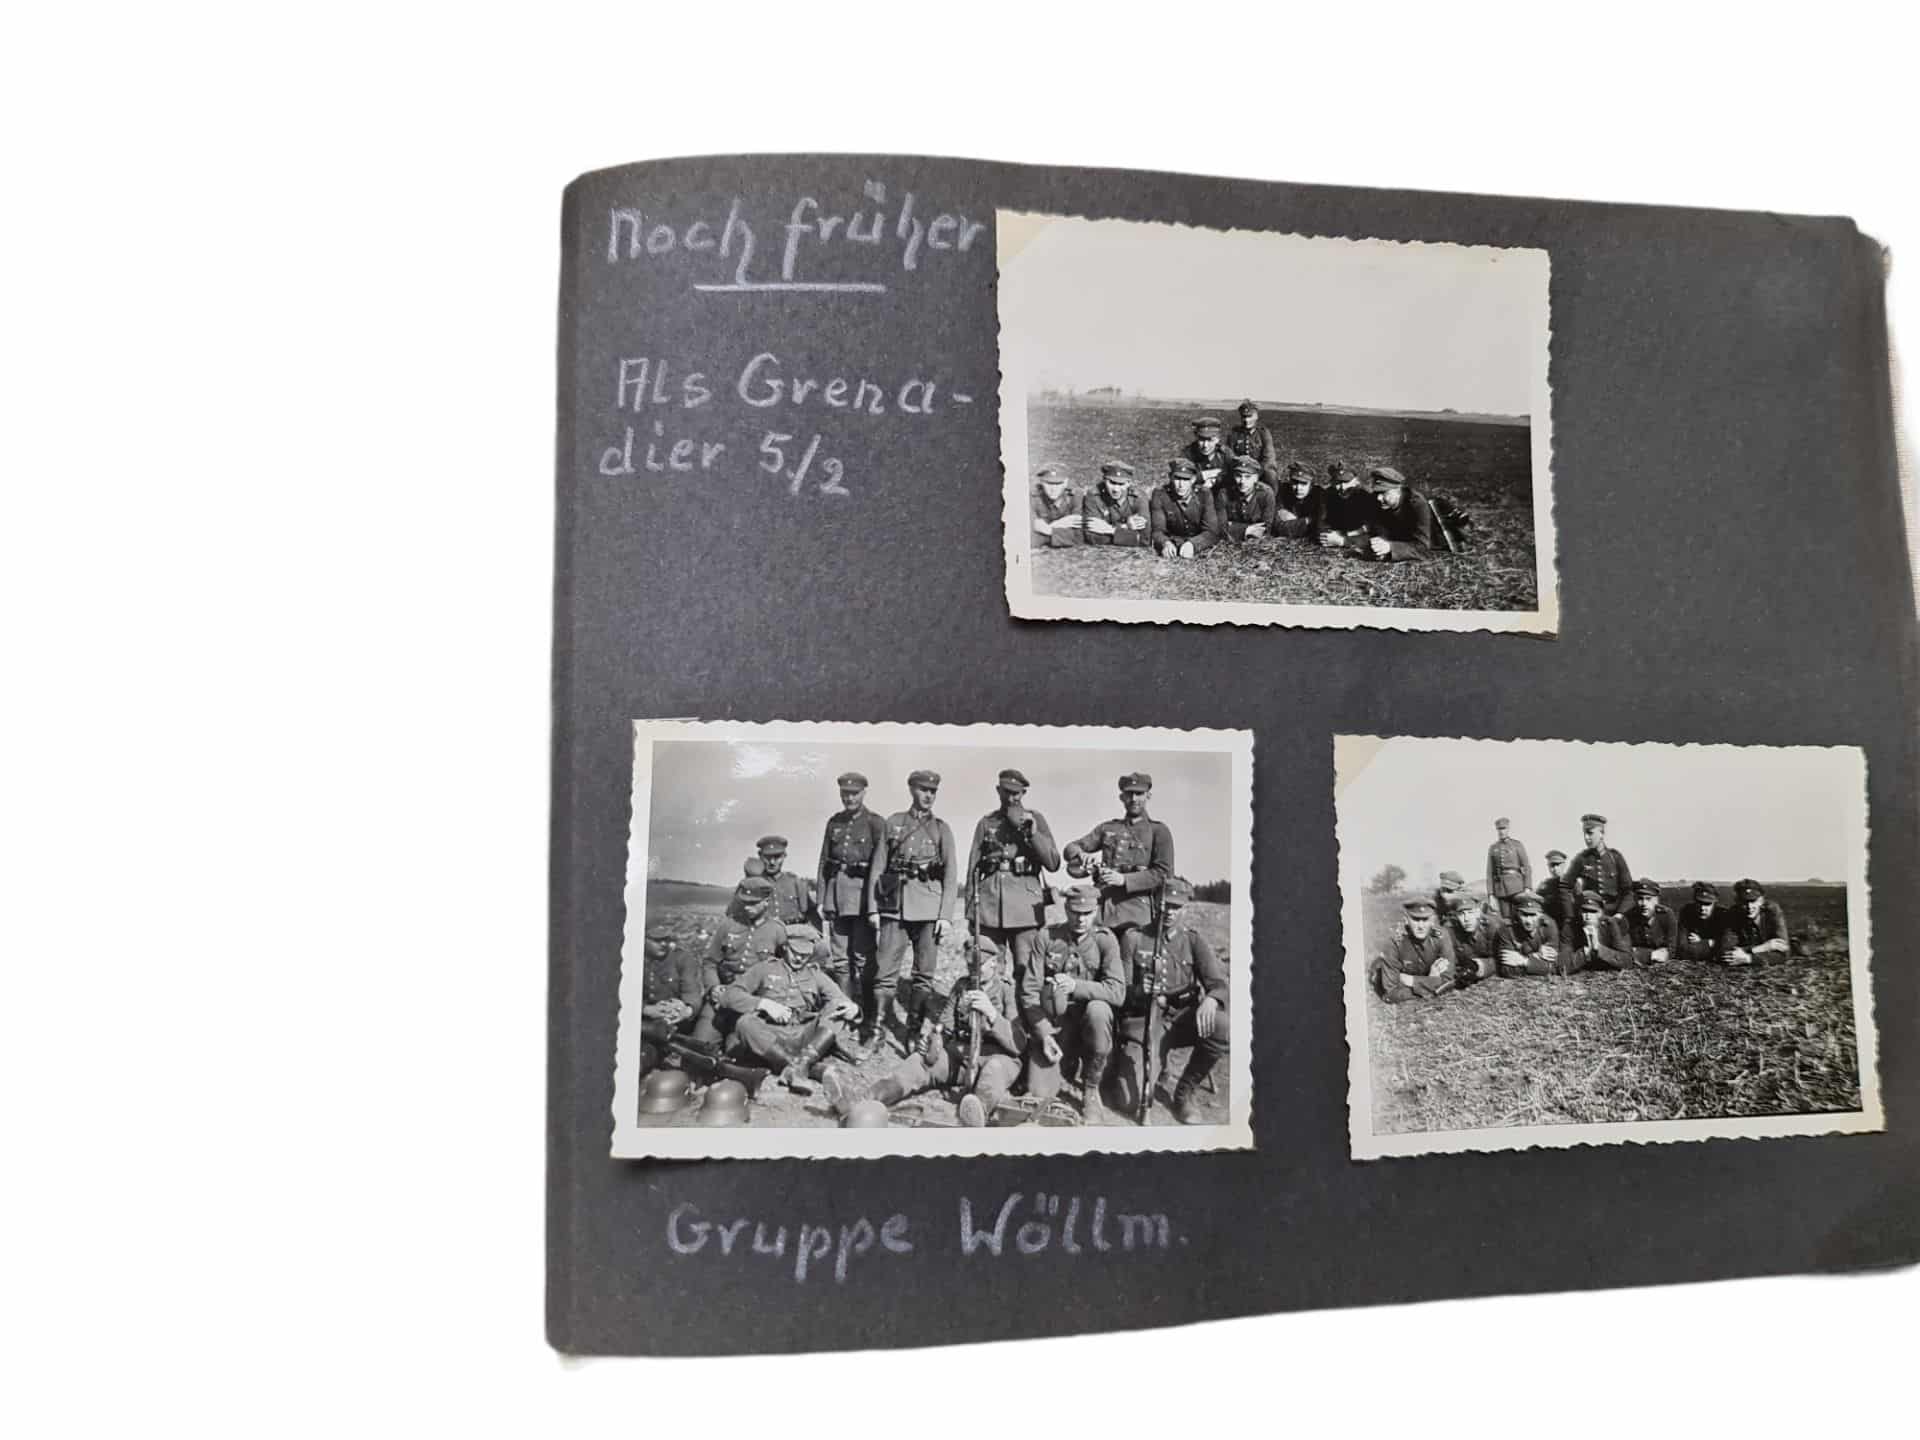 Noch früher
Als Grena-
dier 5./2
Gruppe Wöllm.